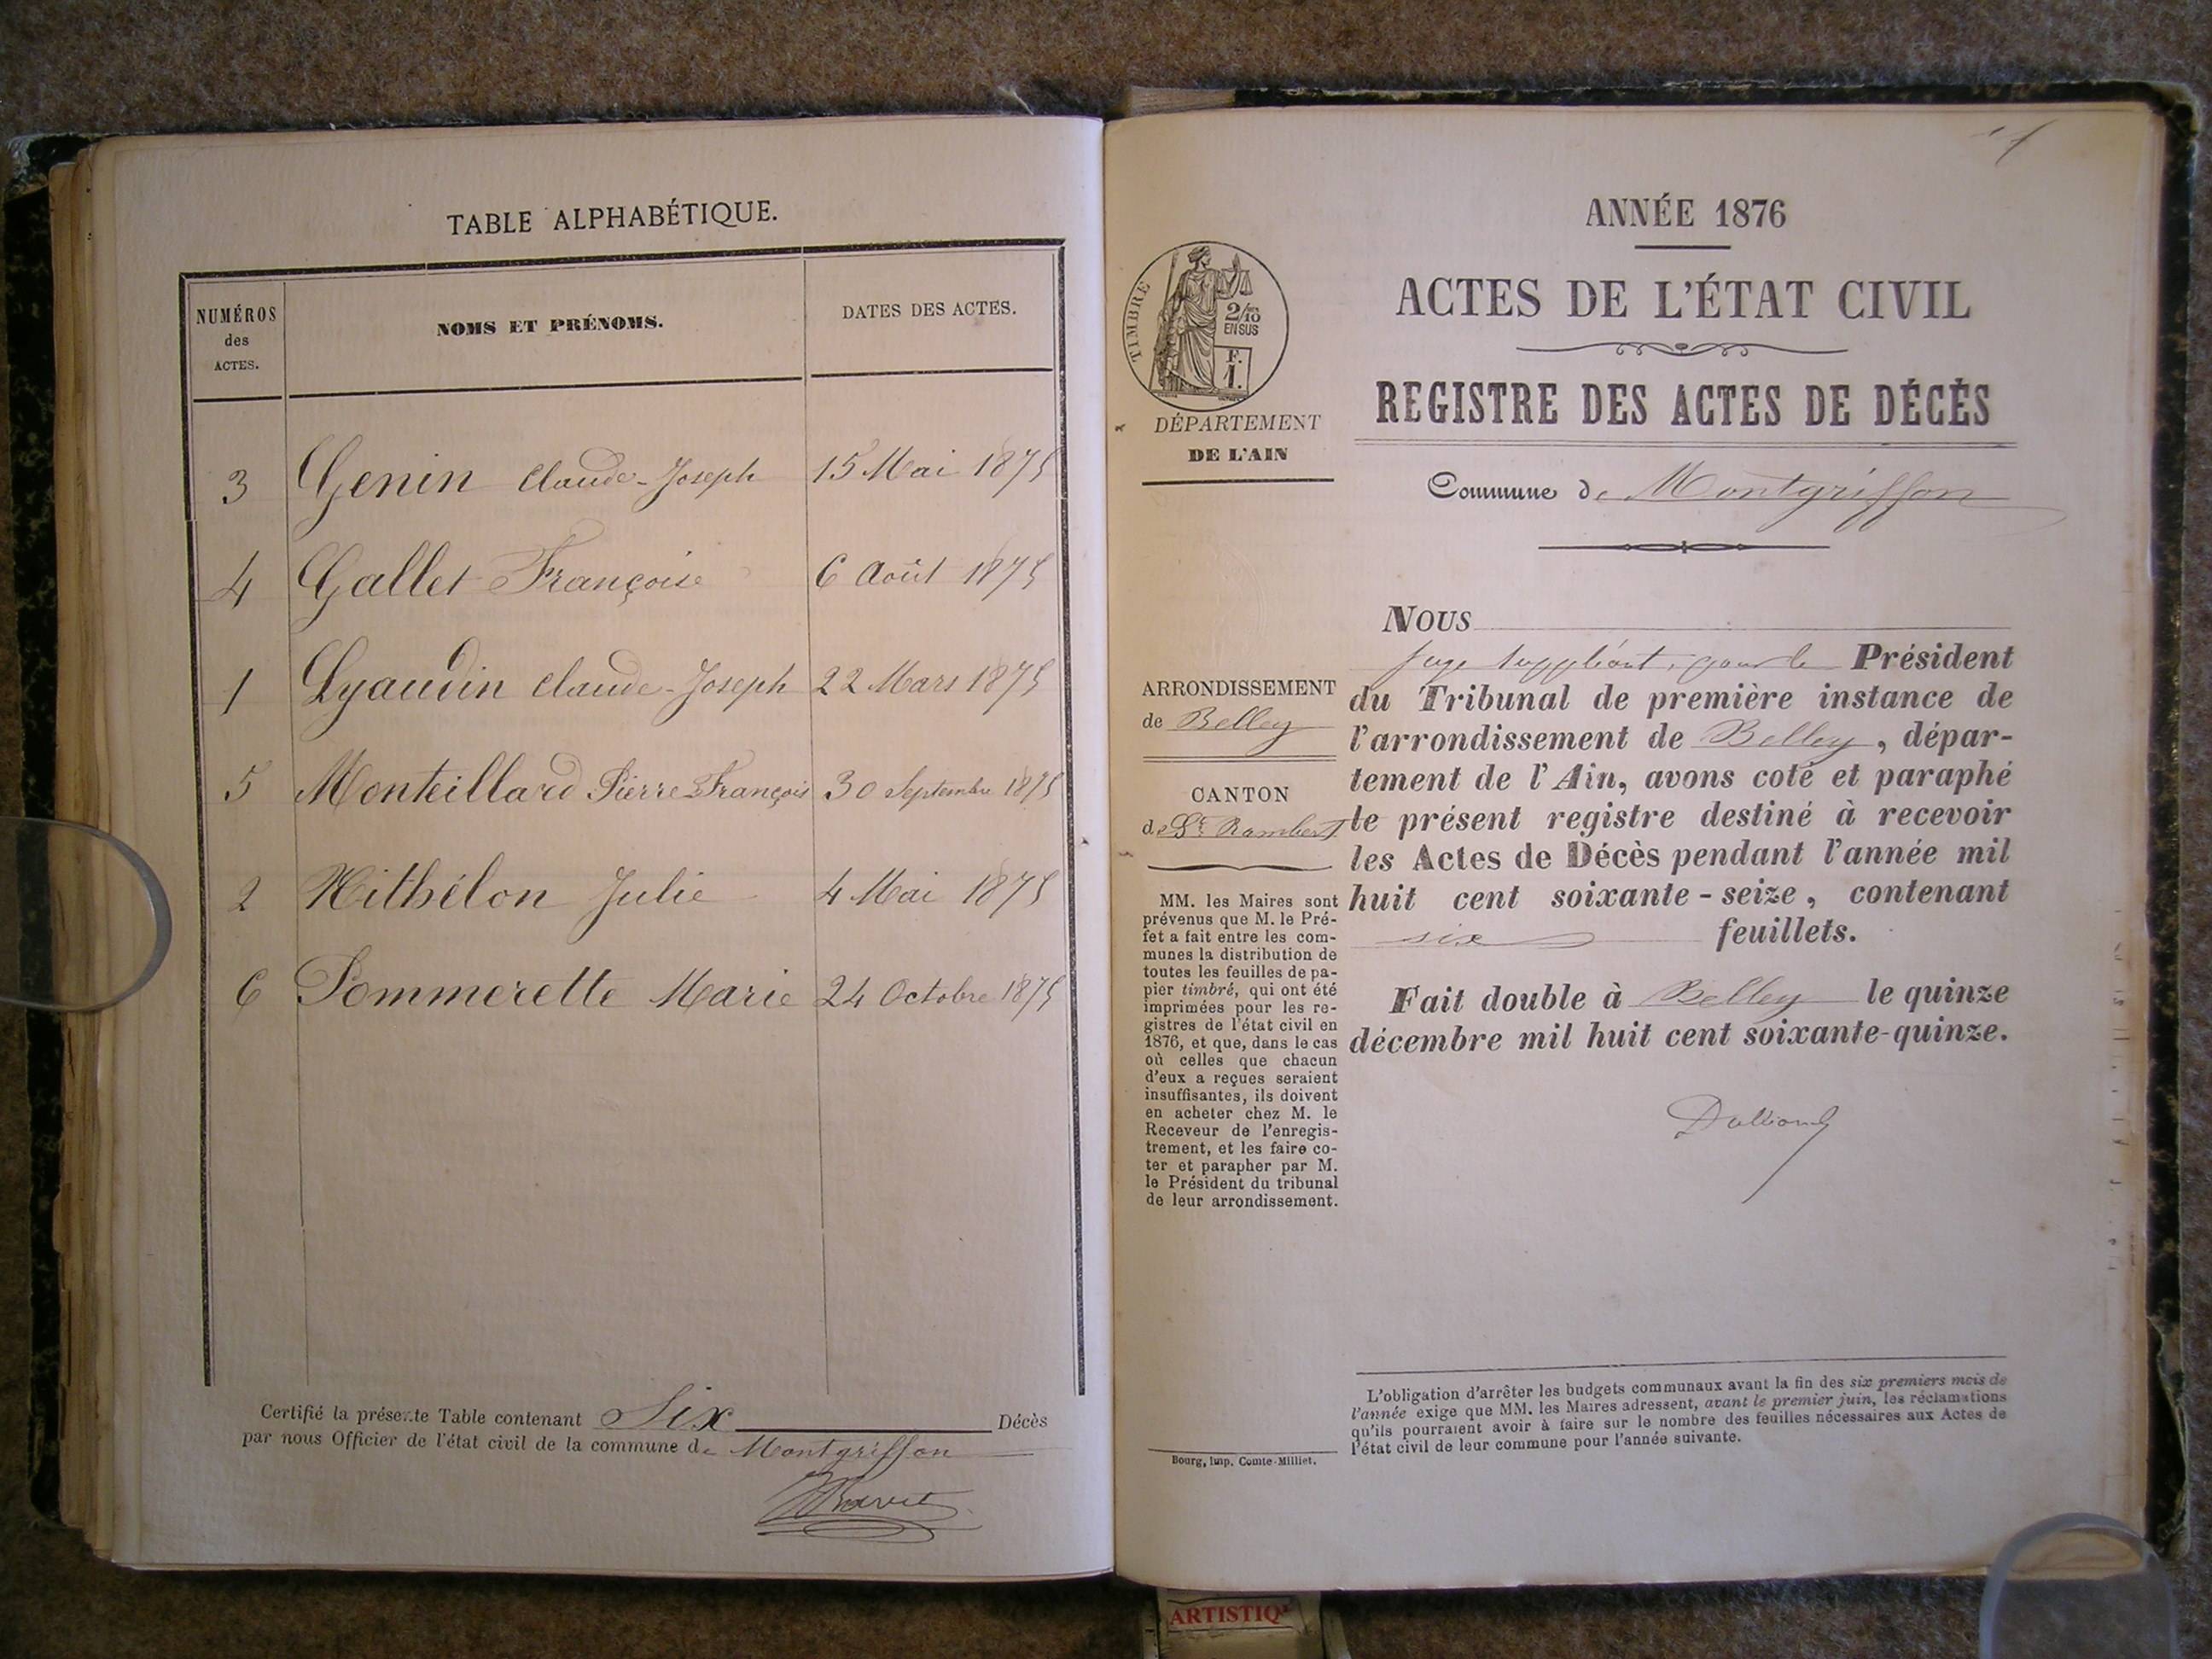 TABLE ALPHABÉTIQUE.
NUMÉROS
des
ACTES.
NOMS ET PRÉNOMS.
DATES DES ACTES.
3 Genin Claude-Joseph 15 Mai 1875
4 Gallet Françoise 6 Août 1875
1 Lyaudin Claude-Joseph 22 Mars 1875
5 Monteillard Pierre François 30 Septembre 1875
2 Nithélon Julie 4 Mai 1875
6 Pommerette Marie 24 Octobre 1875
Certifié la présente Table contenant Six Décès
par nous Officier de l'état civil de la commune de Montgriffon
1
ANNÉE 1876
ACTES DE L'ÉTAT CIVIL
REGISTRE DES ACTES DE DÉCÈS
Commune de Montgriffon
TIMBRE
2/10
EN SUS
F.
1.
DÉPARTEMENT
DE L'AIN
ARRONDISSEMENT
de Belley
CANTON
de St Rambert
MM. les Maires sont
prévenus que M. le Pré-
fet a fait entre les com-
munes la distribution de
toutes les feuilles de pa-
pier timbré, qui ont été
imprimées pour les re-
gistres de l'état civil en
1876, et que, dans le cas
où celles que chacun
d'eux a reçues seraient
insuffisantes, ils doivent
en acheter chez M. le
Receveur de l'enregis-
trement, et les faire co-
ter et parapher par M.
le Président du tribunal
de leur arrondissement.
Bourg, Imp. Comte-Milliet.
NOUS
juge suppléant, pour le Président
du Tribunal de première instance de
l'arrondissement de Belley, dépar-
tement de l'Ain, avons coté et paraphé
le présent registre destiné à recevoir
les Actes de Décès pendant l'année mil
huit cent soixante-seize, contenant
six feuillets.
Fait double à Belley le quinze
décembre mil huit cent soixante-quinze.
L'obligation d'arrêter les budgets communaux avant la fin des six premiers mois de
l'année exige que MM. les Maires adressent, avant le premier juin, les réclamations
qu'ils pourraient avoir à faire sur le nombre des feuilles nécessaires aux Actes de
l'état civil de leur commune pour l'année suivante.
ARTISTIQ